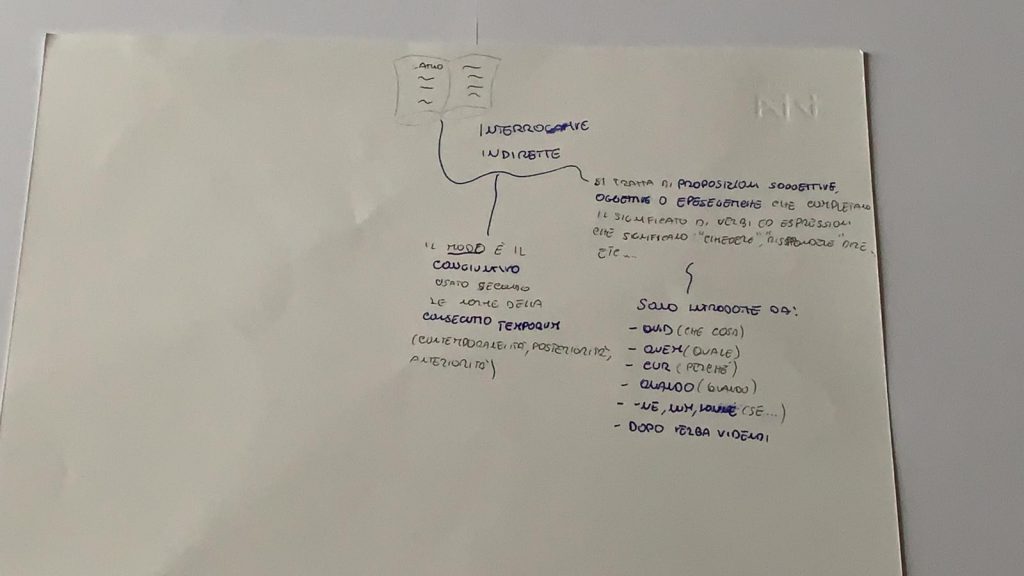 LATINO
INTERROGATIVE
INDIRETTE
SI TRATTA DI PROPOSIZIONI SOGGETTIVE,
OGGETTIVE O EPESEGETICHE CHE COMPLETANO
IL SIGNIFICATO DI VERBI ED ESPRESSIONI
CHE SIGNIFICANO "CHIEDERE", "RISPONDERE" DIRE
ETC...
IL MODO È IL
CONGIUNTIVO
USATO SECONDO
LE NORME DELLA
CONSECUTIO TEMPORUM
(CONTEMPORANEITÀ, POSTERIORITÀ,
ANTERIORITÀ)
SONO INTRODOTTE DA:
- QUID (CHE COSA)
- QUEM (QUALE)
- CUR (PERCHÉ)
- QUANDO (QUANDO)
- -NE, NUM, NONNE (SE...)
- DOPO VERBA VIDENDI